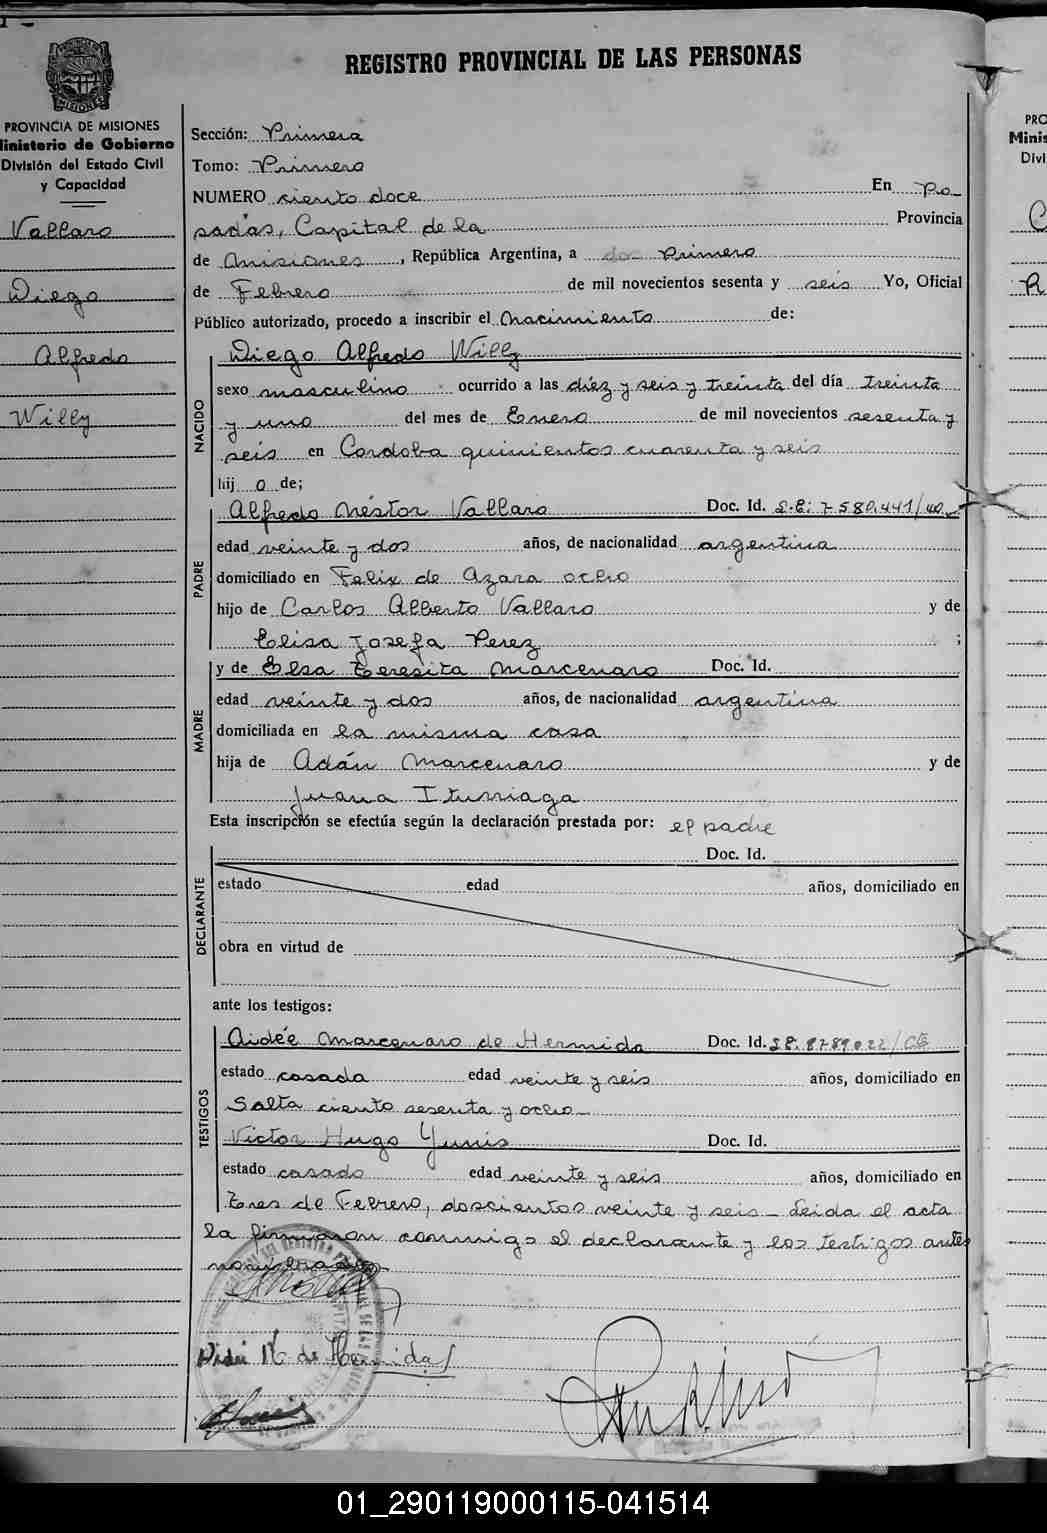 REGISTRO PROVINCIAL DE LAS PERSONAS
MISIONES
PROVINCIA DE MISIONES
Ministerio de Gobierno
División del Estado Civil
y Capacidad
Vallaro
Diego
Alfredo
Willy
Sección: Primera
Tomo: Primero
NUMERO ciento doce En Po-
sadas, Capital de la Provincia
de Misiones, República Argentina, a dos Primero
de Febrero de mil novecientos sesenta y seis Yo, Oficial
Público autorizado, procedo a inscribir el nacimiento de:
NACIDO
Diego Alfredo Willy
sexo masculino ocurrido a las diez y seis y treinta del día treinta
y uno del mes de Enero de mil novecientos sesenta y
seis en Cordoba quinientos cuarenta y seis
hij o de;
PADRE
Alfredo Néstor Vallaro Doc. Id. L.E: 7.580.441/
edad veinte y dos años, de nacionalidad argentina
domiciliado en Felix de Azara ocho
hijo de Carlos Alberto Vallaro y de
Elisa Josefa Perez ;
MADRE
y de Elsa Teresita Marcenaro Doc. Id.
edad veinte y dos años, de nacionalidad argentina
domiciliada en la misma casa
hija de Adán Marcenaro y de
Juana Iturriaga
Esta inscripción se efectúa según la declaración prestada por: el padre
DECLARANTE
Doc. Id.
estado edad años, domiciliado en
obra en virtud de
ante los testigos:
TESTIGOS
Aidée Marcenaro de Hermida Doc. Id.
estado casada edad veinte y seis años, domiciliado en
Salta ciento sesenta y ocho-
Victor Hugo Yunis Doc. Id.
estado casado edad veinte y seis años, domiciliado en
Tres de Febrero, doscientos veinte y seis - Leida el acta
la firmaron conmigo el declarante y los testigos antes
nombrados-
M. de Hermida
PRO
Minis
Divi
01_290119000115-041514